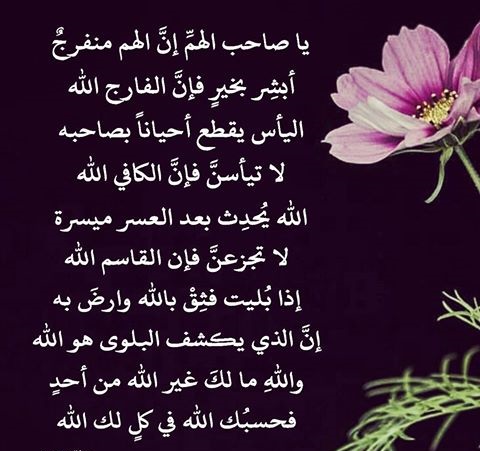 يا صاحب الهمِّ إنَّ الهم منفرجٌ
أبشِر بخيرٍ فإنَّ الفارج الله
اليأس يقطع أحياناً بصاحبه
لا تيأسنَّ فإنَّ الكافي الله
الله يُحدِث بعد العسر ميسرة
لا تجزعنَّ فإن القاسم الله
إذا بُليت فثِقْ بالله وارضَ به
إنَّ الذي يكشف البلوى هو الله
واللهِ ما لكَ غير الله من أحدٍ
فحسبُك الله في كلٍ لك الله